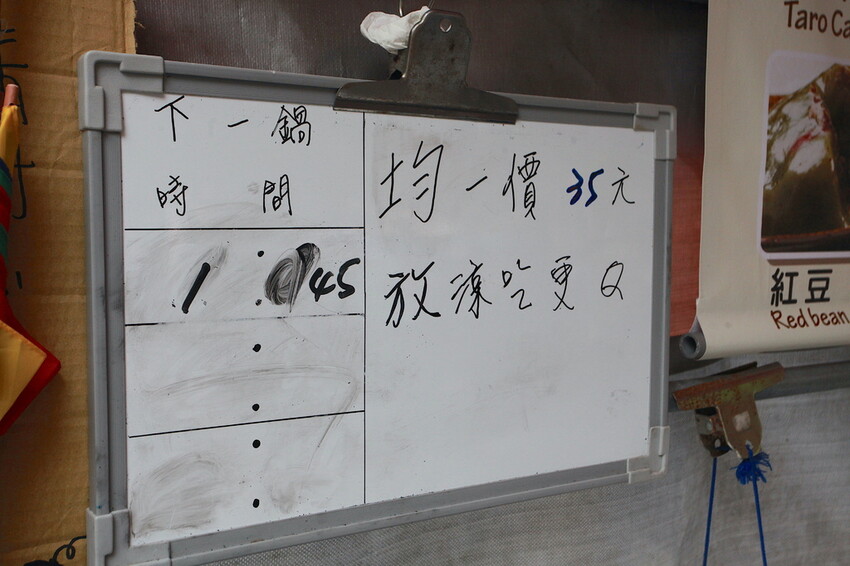 下一鍋
時間
1:45
均一價35元
放涼吃更Q
Taro Ca
紅豆
Red bean